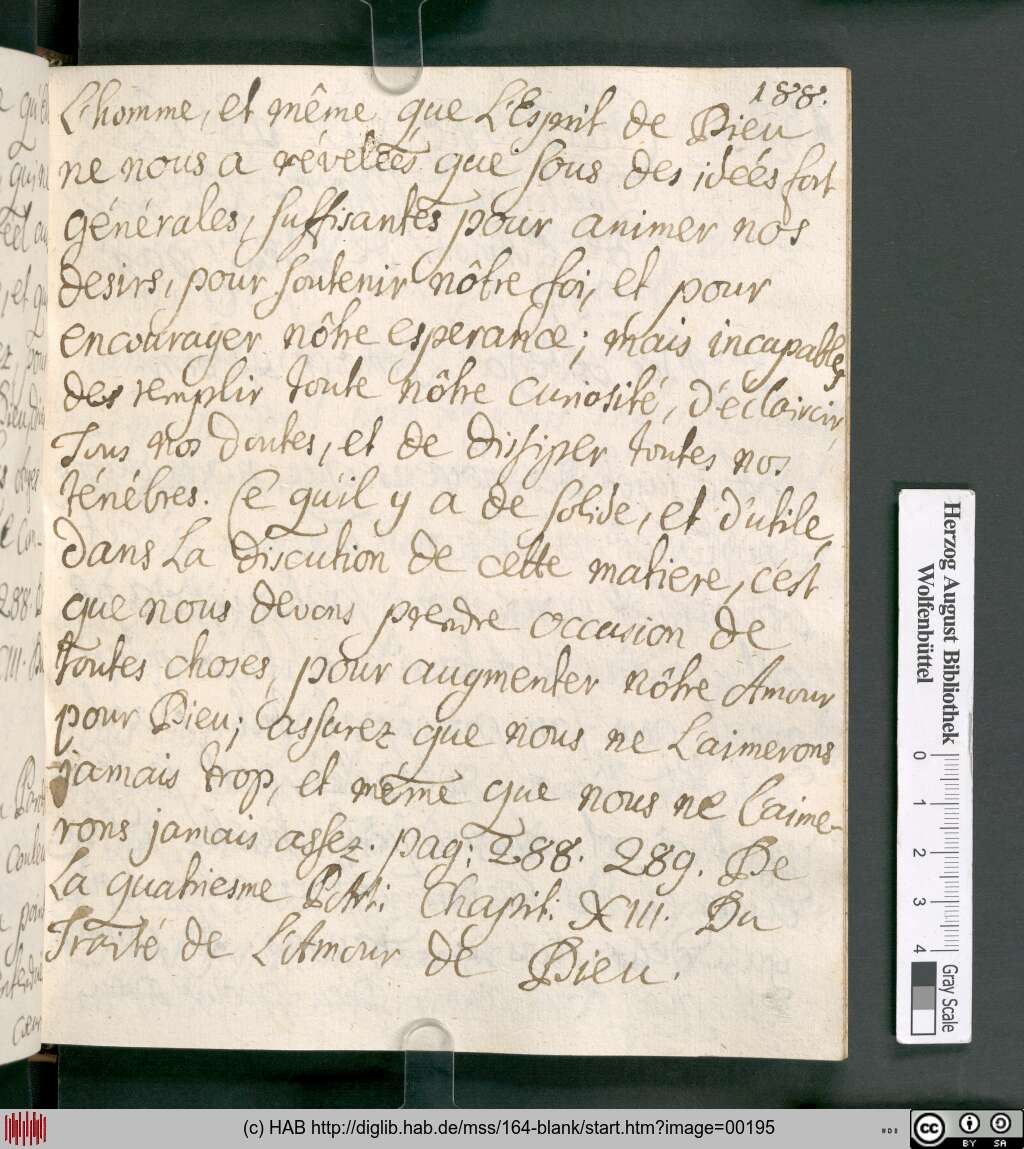 188.
L'homme, et même que L'Esprit de Dieu
ne nous a révelées que sous des idées fort
générales, suffisantes pour animer nos
desirs, pour soutenir nôtre foi, et pour
encourager nôtre esperance; mais incapables
des remplir toute nôtre curiosité, d'éclaircir
Tous nos doutes, et de dissiper toutes nos
ténébres. Ce qu'il y a de solide, et d'utile,
dans La discution de cette matiere, c'est
que nous devons prendre occasion de
toutes choses, pour augmenter nôtre Amour
pour Dieu; assurez que nous ne L'aimerons
jamais trop, et même que nous ne l'aime-
rons jamais assez. pag: 288. 289. De
La quatriesme Chapit: XIII. Du
Traité de L'Amour de Dieu.
Herzog August Bibliothek
Wolfenbüttel
0 1 2 3 4
Gray Scale
(c) HAB http://diglib.hab.de/mss/164-blank/start.htm?image=00195
cc BY SA